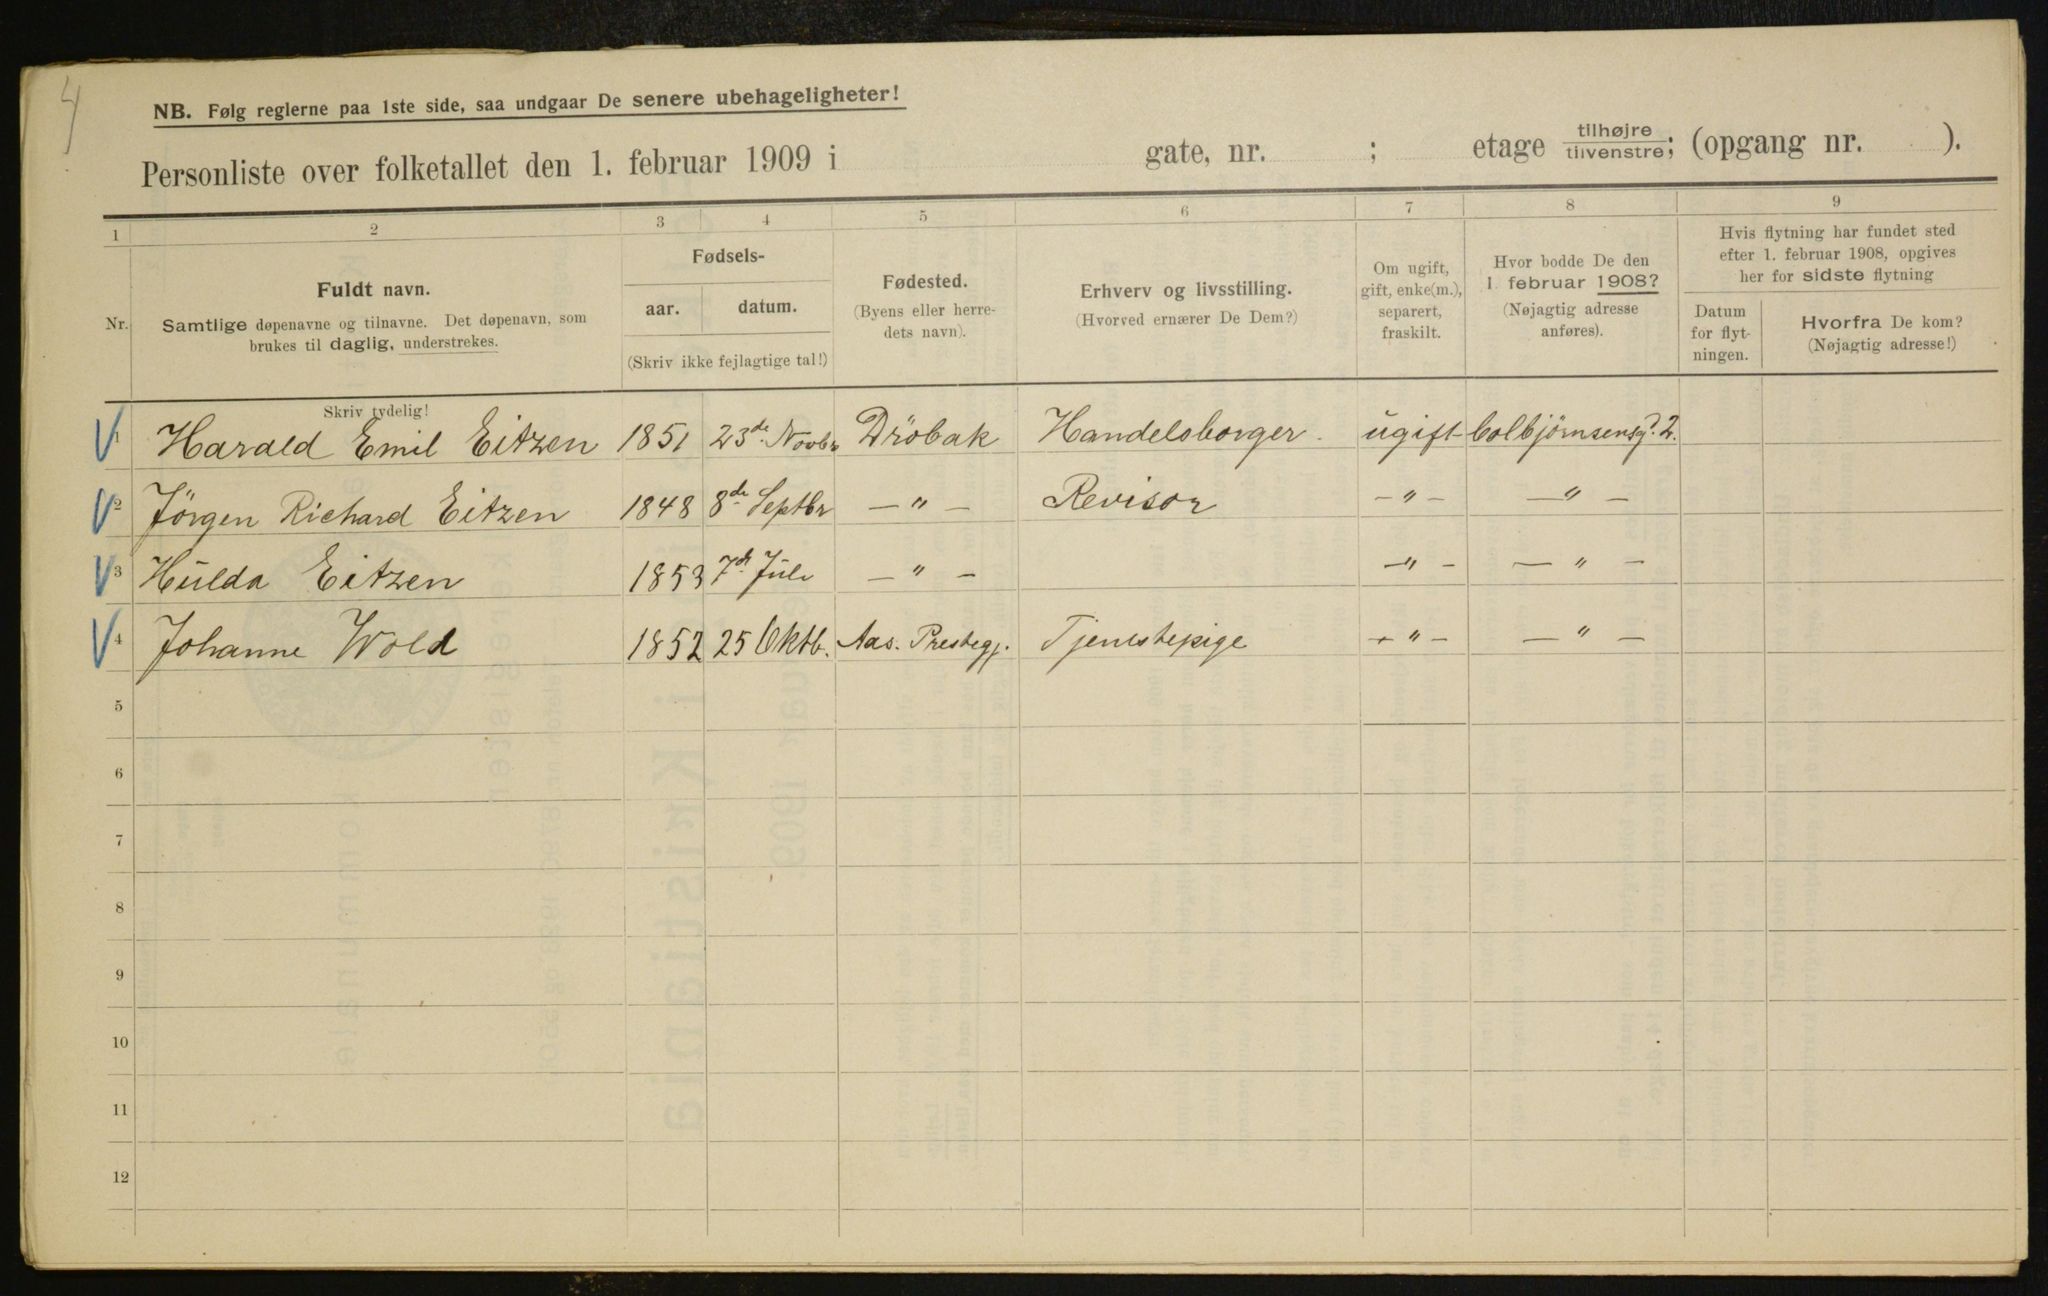 4
NB. Følg reglerne paa 1ste side, saa undgaar De senere ubehageligheter!
Personliste over folketallet den 1. februar 1909 i gate, nr. ; etage tilhøjre/tilvenstre; (opgang nr. ).
1 2 3 4 5 6 7 8 9
Nr.
Fuldt navn.
Samtlige døpenavne og tilnavne. Det døpenavn, som
brukes til daglig, understrekes.
Skriv tydelig!
Fødsels-
aar. datum.
(Skriv ikke fejlagtige tal!)
Fødested.
(Byens eller herre-
dets navn).
Erhverv og livsstilling.
(Hvorved ernærer De Dem?)
Om ugift,
gift, enke(m.),
separert,
fraskilt.
Hvor bodde De den
1. februar 1908?
(Nøjagtig adresse
anføres).
Hvis flytning har fundet sted
efter 1. februar 1908, opgives
her for sidste flytning
Datum
for flyt-
ningen.
Hvorfra De kom?
(Nøjagtig adresse!)
1 Harald Emil Eitzen 1851 23de Novbr Dröbak Handelsborger. ugift Colbjörnsensg. 2.
2 Jörgen Richard Eitzen 1848 8de Septbr — " — Revisor — " — — " —
3 Hulda Eitzen 1853 7de Juli — " — — " — — " —
4 Johanne Wold 1852 25 Oktb. Aas. Prestegj. Tjenestepige — " — — " —
5
6
7
8
9
10
11
12